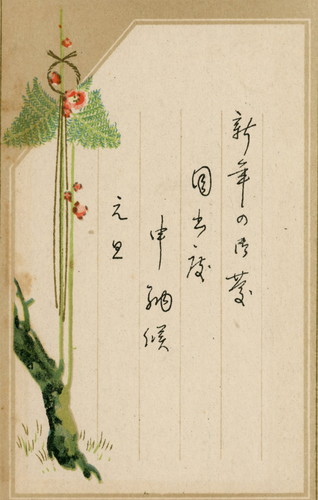 新年の御慶
目出度
申納候
元旦